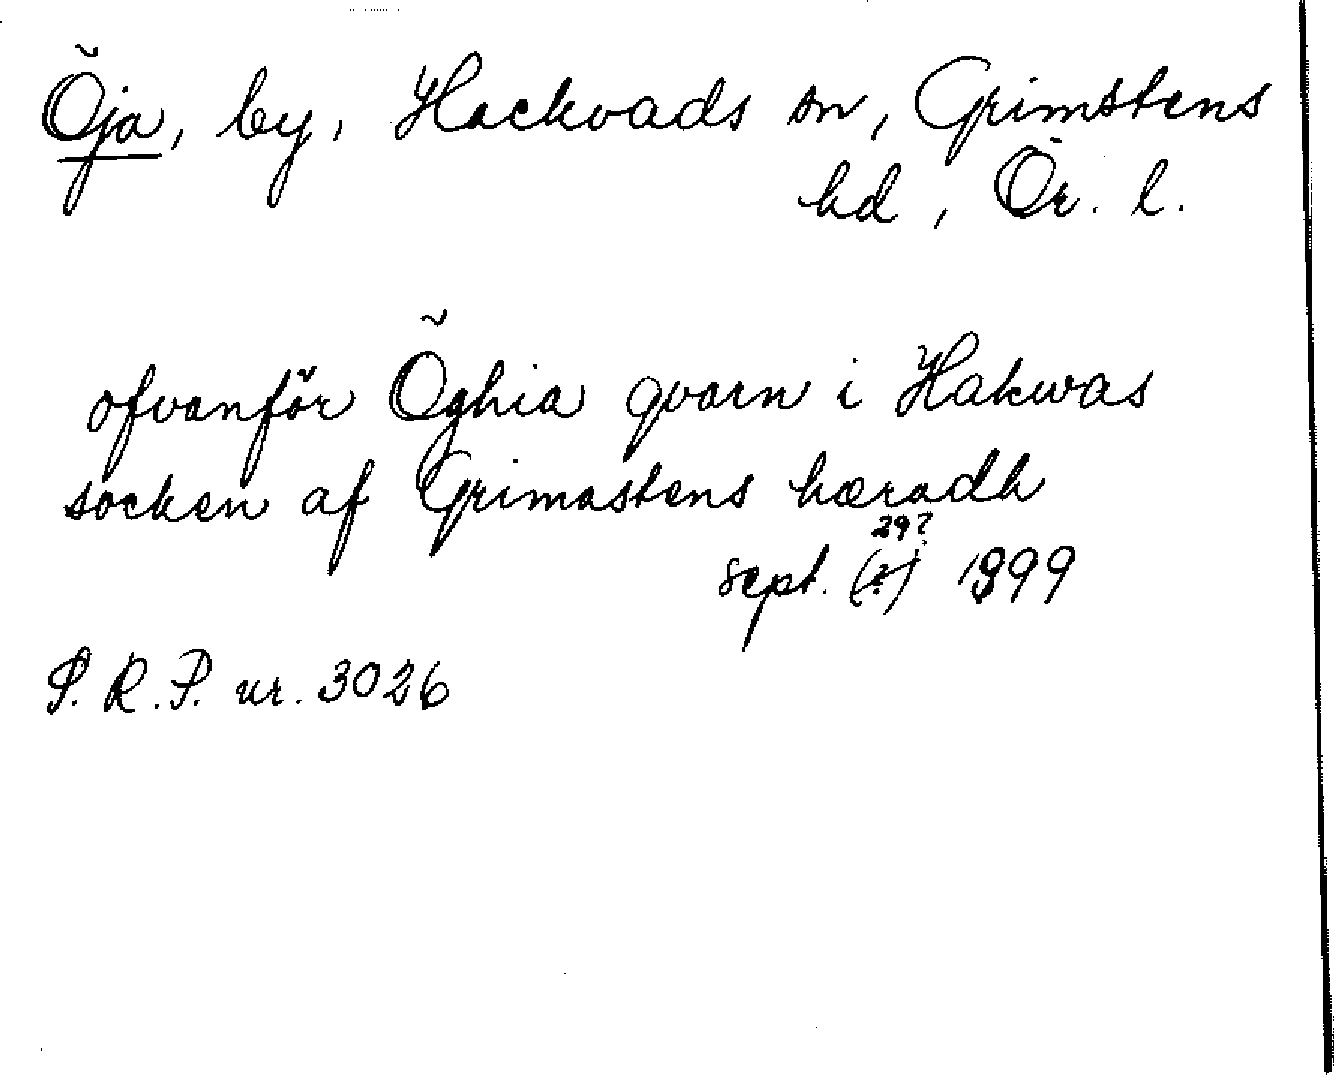 Öja, by, Hackvads sn, Grimstens
hd, Ör. l.
ofvanför Öghia qvarn i Hakwas
socken af Grimastens hæradh
29?
sept. (?) 1399
S. R. P. nr. 3026